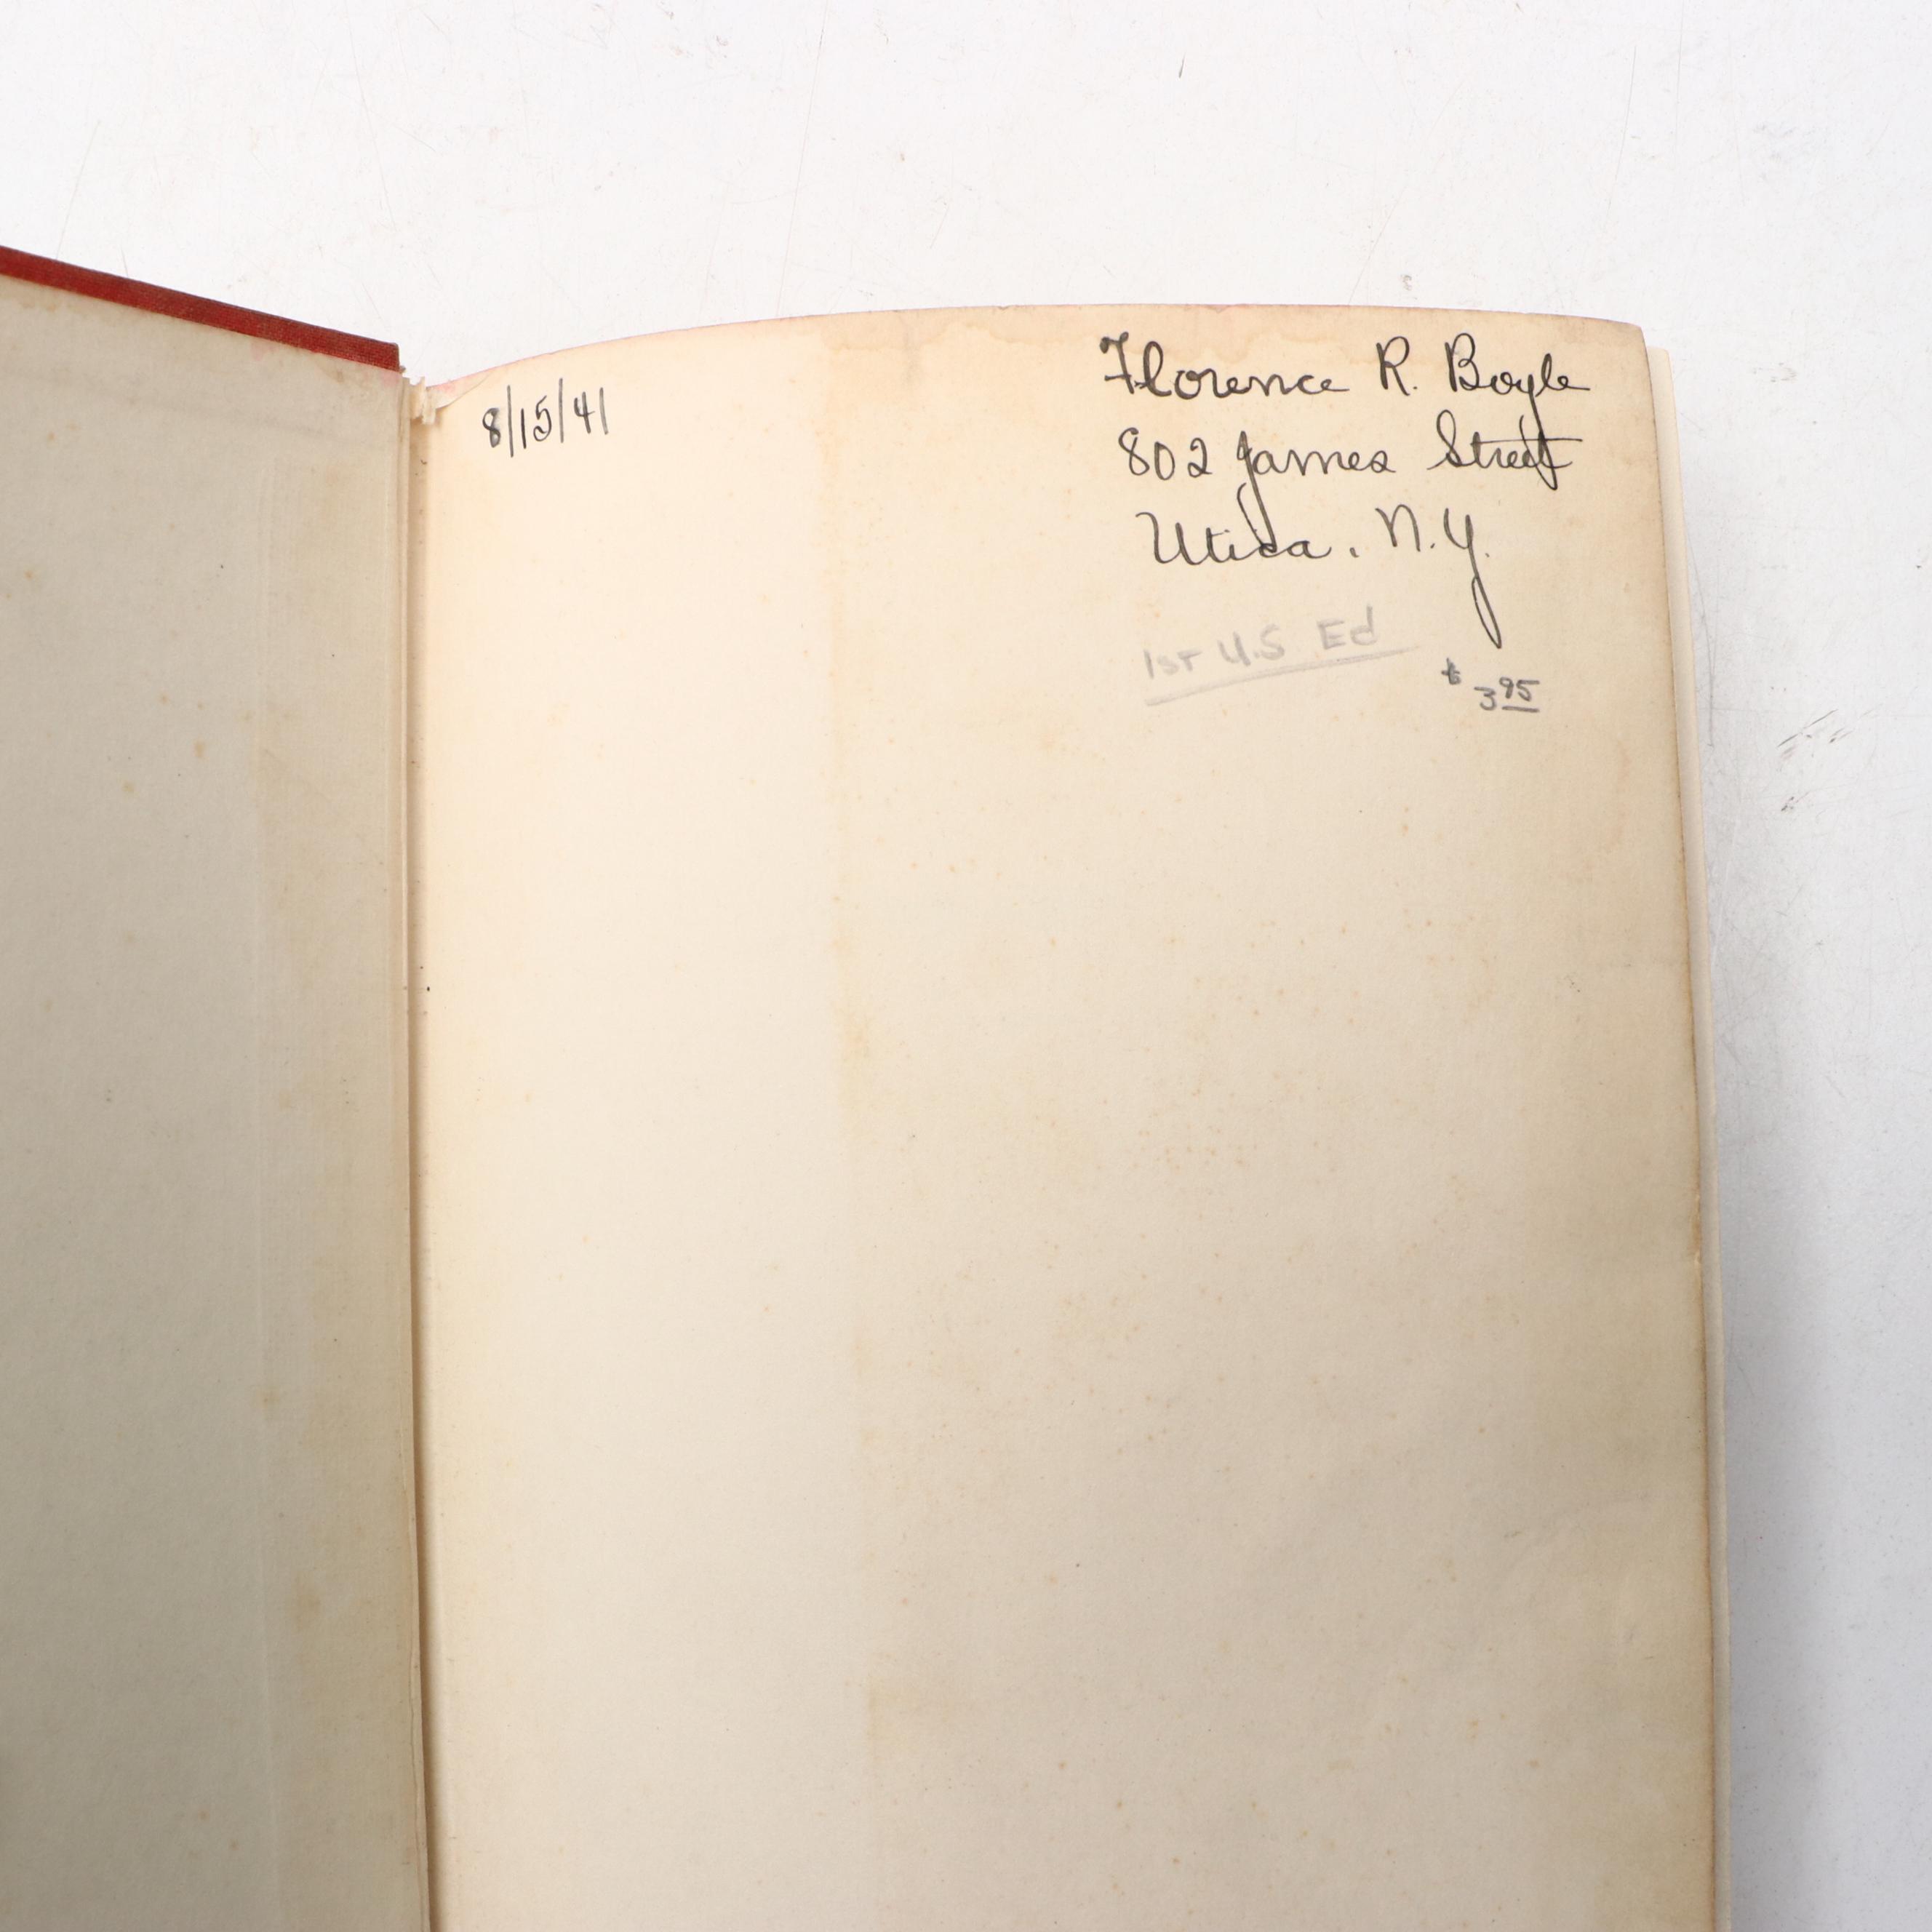 8/15/41
Florence R. Boyle
802 James Street
Utica, N.Y.
1st U.S Ed
$ 3 95